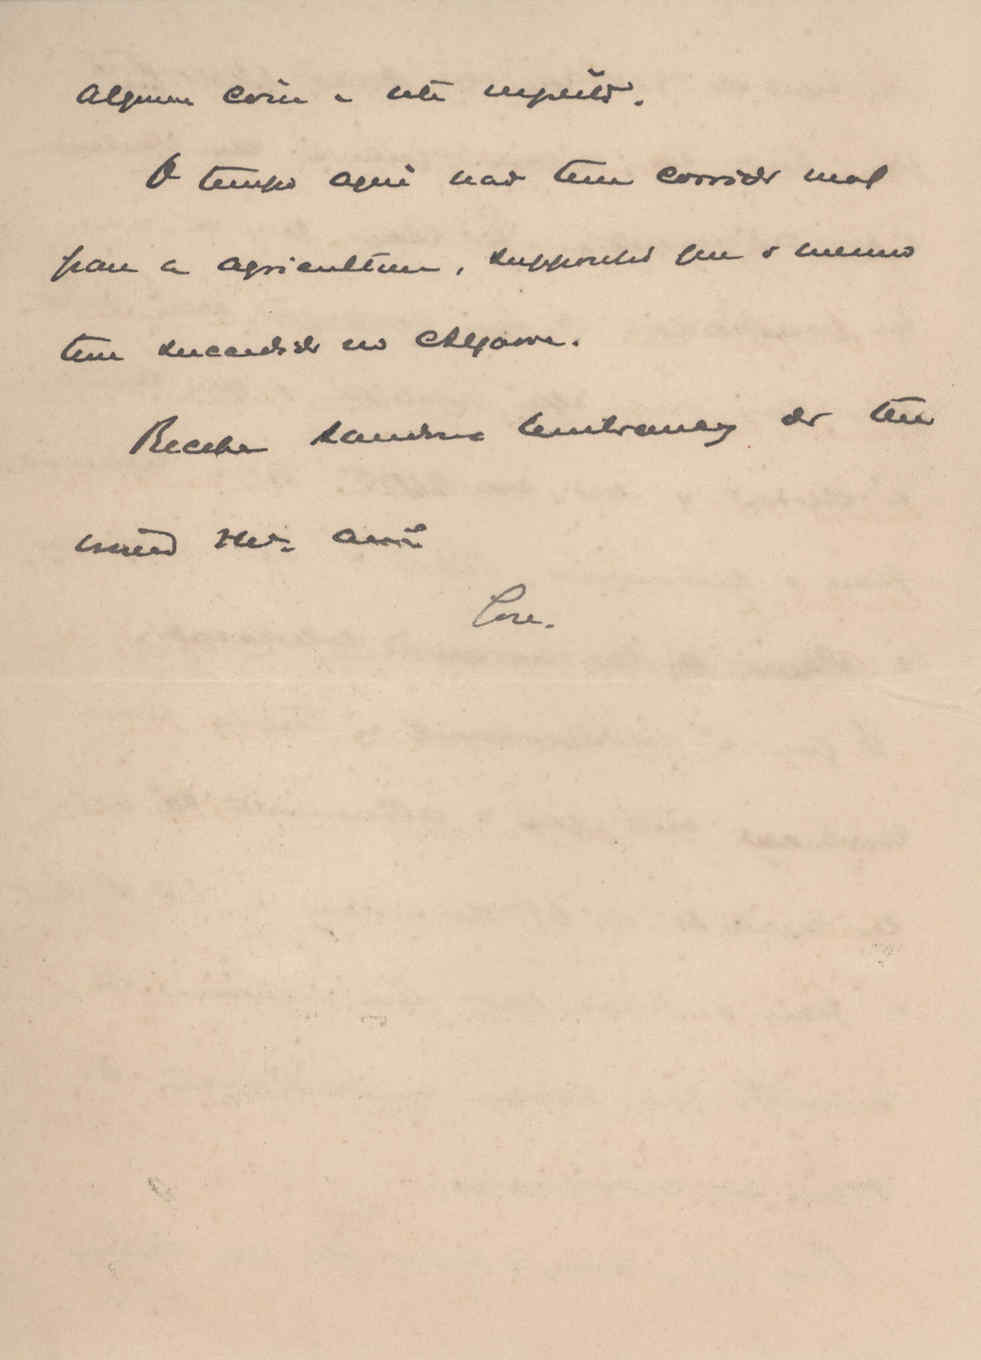 alguma coisa a este respeito.
O tempo aqui não tem corrido mal
para a agricultura, supponho que o mesmo
tem succedido no Algarve.
Recebe saudosas lembranças do teu
muito
José.